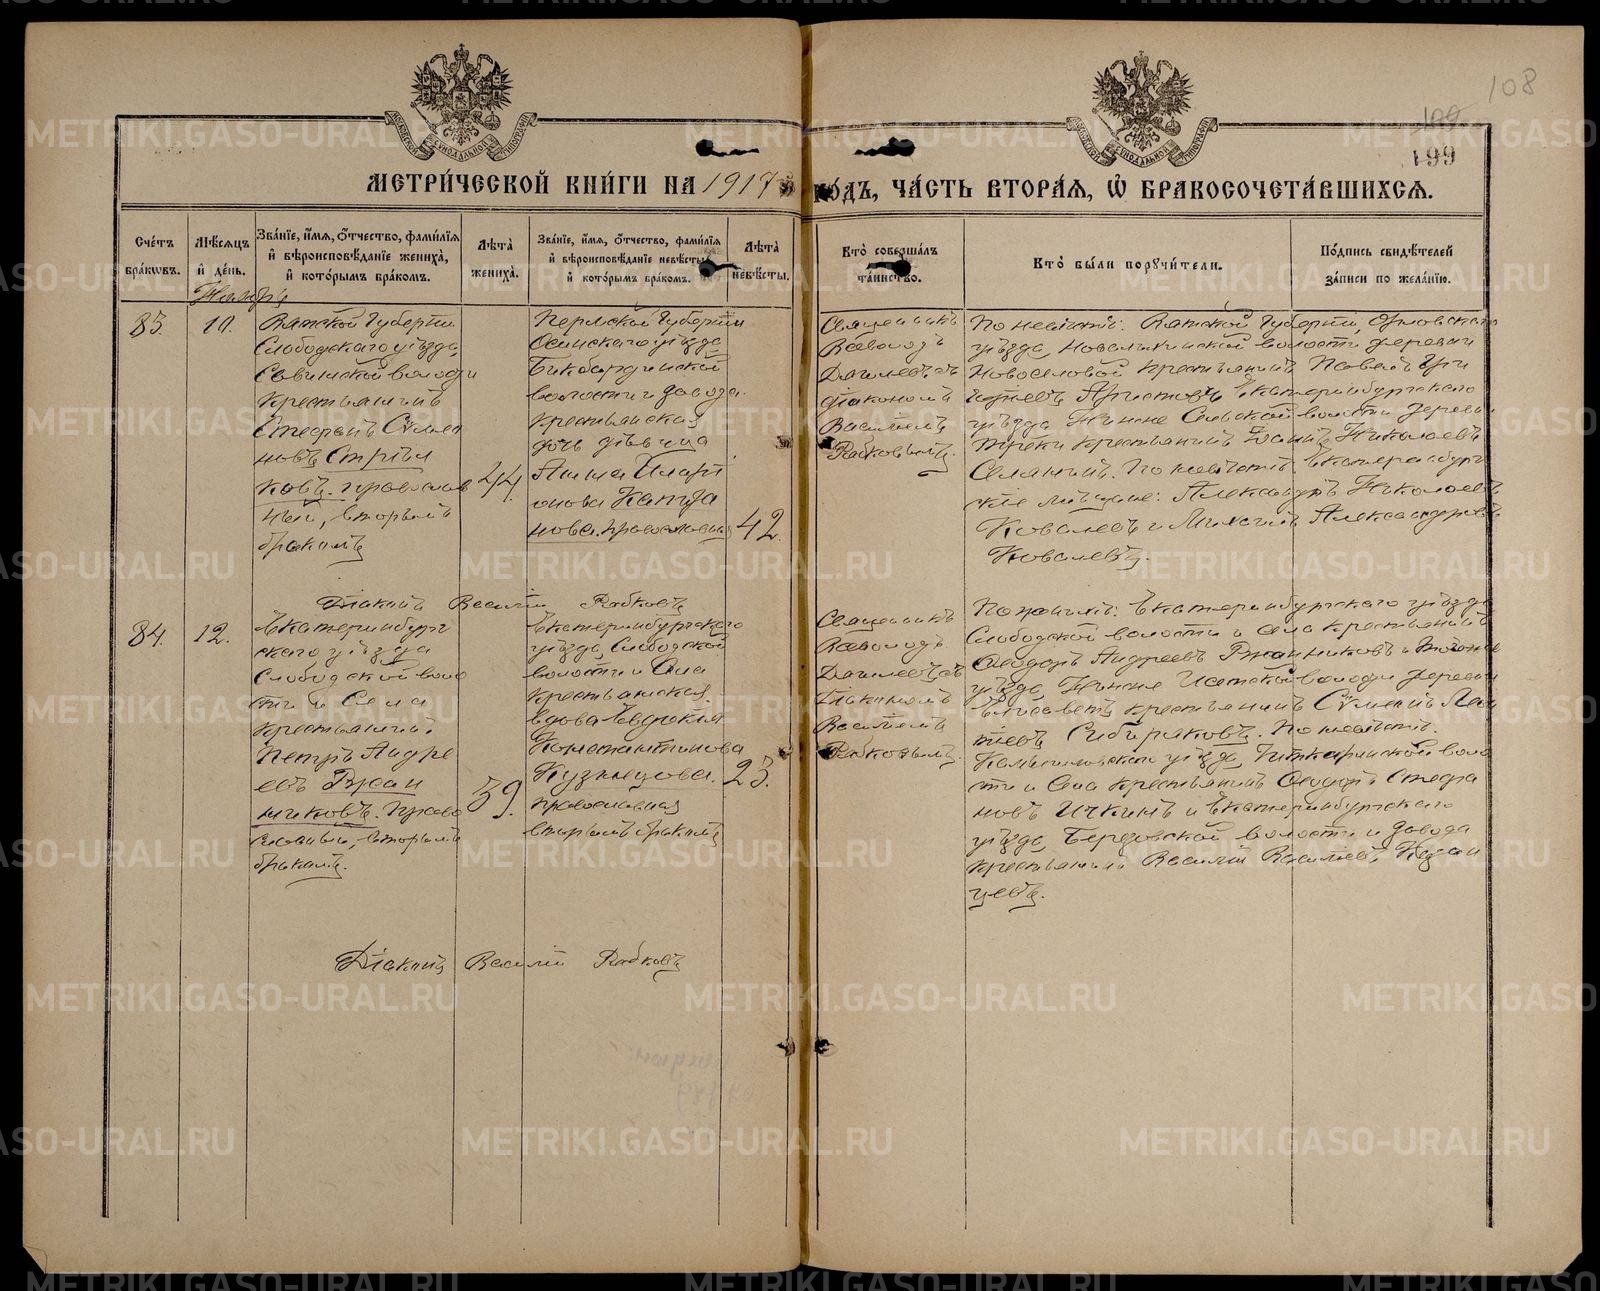 108
199
МЕТРИ́ЧЕСКОЙ КНИ́ГИ НА 1917 ГО́ДЪ, ЧА́СТЬ ВТОРА́Я, Ѡ҆ БРАКОСОЧЕТА́ВШИХСЯ.
Сче́тъ бра́кѡвъ.
Мѣ́сяцъ и҆ де́нь.
Зва́нїе, и҆́мя, ѻ҆́тчество, фами́лїя и҆ вѣроисповѣ́данїе жениха̀, и҆ кото́рымъ бра́комъ.
Лѣ́та жениха̀.
Зва́нїе, и҆́мя, ѻ҆́тчество, фами́лїя и҆ вѣроисповѣ́данїе невѣ́сты, и҆ кото́рымъ бра́комъ.
Лѣ́та невѣ́сты.
Кто̀ соверша́лъ та́инство.
Кто̀ бы́ли порꙋчи́тели.
По́дпись свидѣ́телей за́писи по жела́нїю.
Ноября
83.
Вятской губерніи
Слободскаго уѣзда,
Савинской волости
крестьянинъ
Стефанъ Сѷмео
новъ Стрѣл
ковъ, православ
ный, вторымъ
бракомъ
44.
Пермской губерніи
Осинскаго уѣзда
Бикбардинской
волости и завода
крестьянская
дочь дѣвица
Анна Иларі
онова Кагда
нова, православная
42.
Священникъ
Всеволодъ
діакономъ
Василіемъ
Рябковымъ.
По невѣстѣ: Вятской губерніи, Орловскаго
уѣзда, волости деревни
Новоселовой крестьянинъ Павелъ Гри
горьевъ Аристовъ Екатеринбургскаго
уѣзда Нижне Сельской волости деревни
крестьянинъ Николаевъ
По невѣстѣ: Екатеринбург
скіе мѣщане: Александръ Николаевъ
Ковалевъ и Александровъ
Ковалевъ.
Діаконъ Василій Рябковъ
84.
12.
Екатеринбург
скаго уѣзда
Слободской воло
сти и села
крестьянинъ
Петръ Андре
евъ Ржан
никовъ, право
славный, вторымъ
бракомъ.
39.
Екатеринбургскаго
уѣзда, Слободской
волости и села
крестьянская
вдова Евдокія
Константинова
Кузнецова.
православная
вторымъ бракомъ
23.
Священникъ
Всеволодъ
діакономъ
Василіемъ
Рябковымъ.
По женихѣ: Екатеринбургскаго уѣзда
Слободской волости и села крестьянинъ
Ѳеодоръ Андреевъ Ржанниковъ и того же
уѣзда, Нижне Исетской волости деревни
Елисаветъ крестьянинъ Сѷмеонъ
Сибиряковъ. По невѣстѣ:
Камышловскаго уѣзда, воло
сти и села крестьянинъ Ѳеодоръ Стефа
новъ Ичкинъ и Екатеринбургскаго
уѣзда, Березовской волости и завода
крестьянинъ Василій Васильевъ Казан
цевъ.
Діаконъ Василій Рябковъ